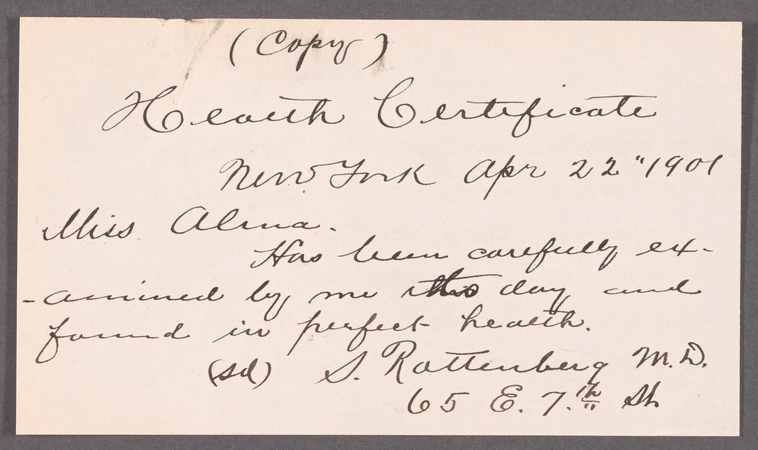 (Copy)
Health Certificate
New York Apr 22" 1901
Miss Alma.
Has been carefully ex-
-amined by me this day and
found in perfect health.
(sd) S. Rottenberg M.D.
65 E. 7.th St